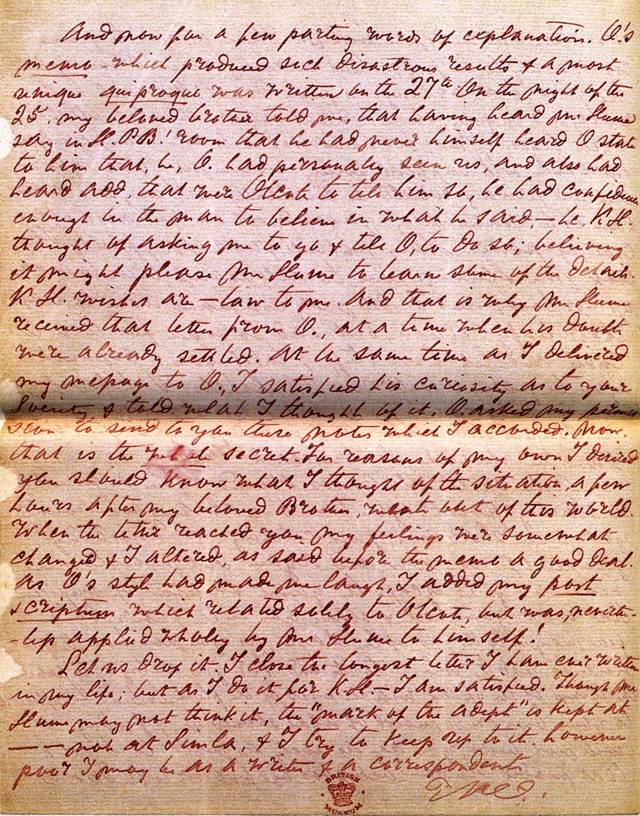 And now for a few parting words of explanation. O.'s
memo — which produced such disastrous results & a most
unique quiproquo was written on the 27th. On the night of the
25, my beloved brother told me, that having heard Mr Hume
say in H.P.B.'s room that he had never himself heard O state
to him that, he, O. had personally seen us, and also had
heard add, that were Olcott to tell him so, he had confidence
enough in the man to believe in what he said. — he K.H.
thought of asking me to go & tell O, to do so; believing
it might please Mr Hume to learn some of the details
K.H. wishes are — law to me. And that is why Mr Hume
received that letter from O., at a time when his doubts
were already settled. At the same time as I delivered
my message to O., I satisfied his curiosity as to your
Society & told what I thought of it. O. asked my permis
sion to send to you these notes which I accorded. Now,
that is the whole secret. For reasons of my own I desired
you should know what I thought of the situation, a few
hours after my beloved Brother, went out of this world.
When the letter reached you my feelings were somewhat
changed & I altered, as said before the memo a good deal.
As O's style had made me laugh, I added my post
scriptum which related solely to Olcott, but was, neverthe
-less applied wholly by Mr Hume to himself!
Let us drop it. I close the longest letter I have ever written
in my life; but as I do it for K.H. — I am satisfied. Though Mr
Hume may not think it, the "mark of the adept" is kept at
— — not at Simla, & I try to keep up to it. however
poor I may be as a writer & a correspondent
BRITISH
MUSEUM